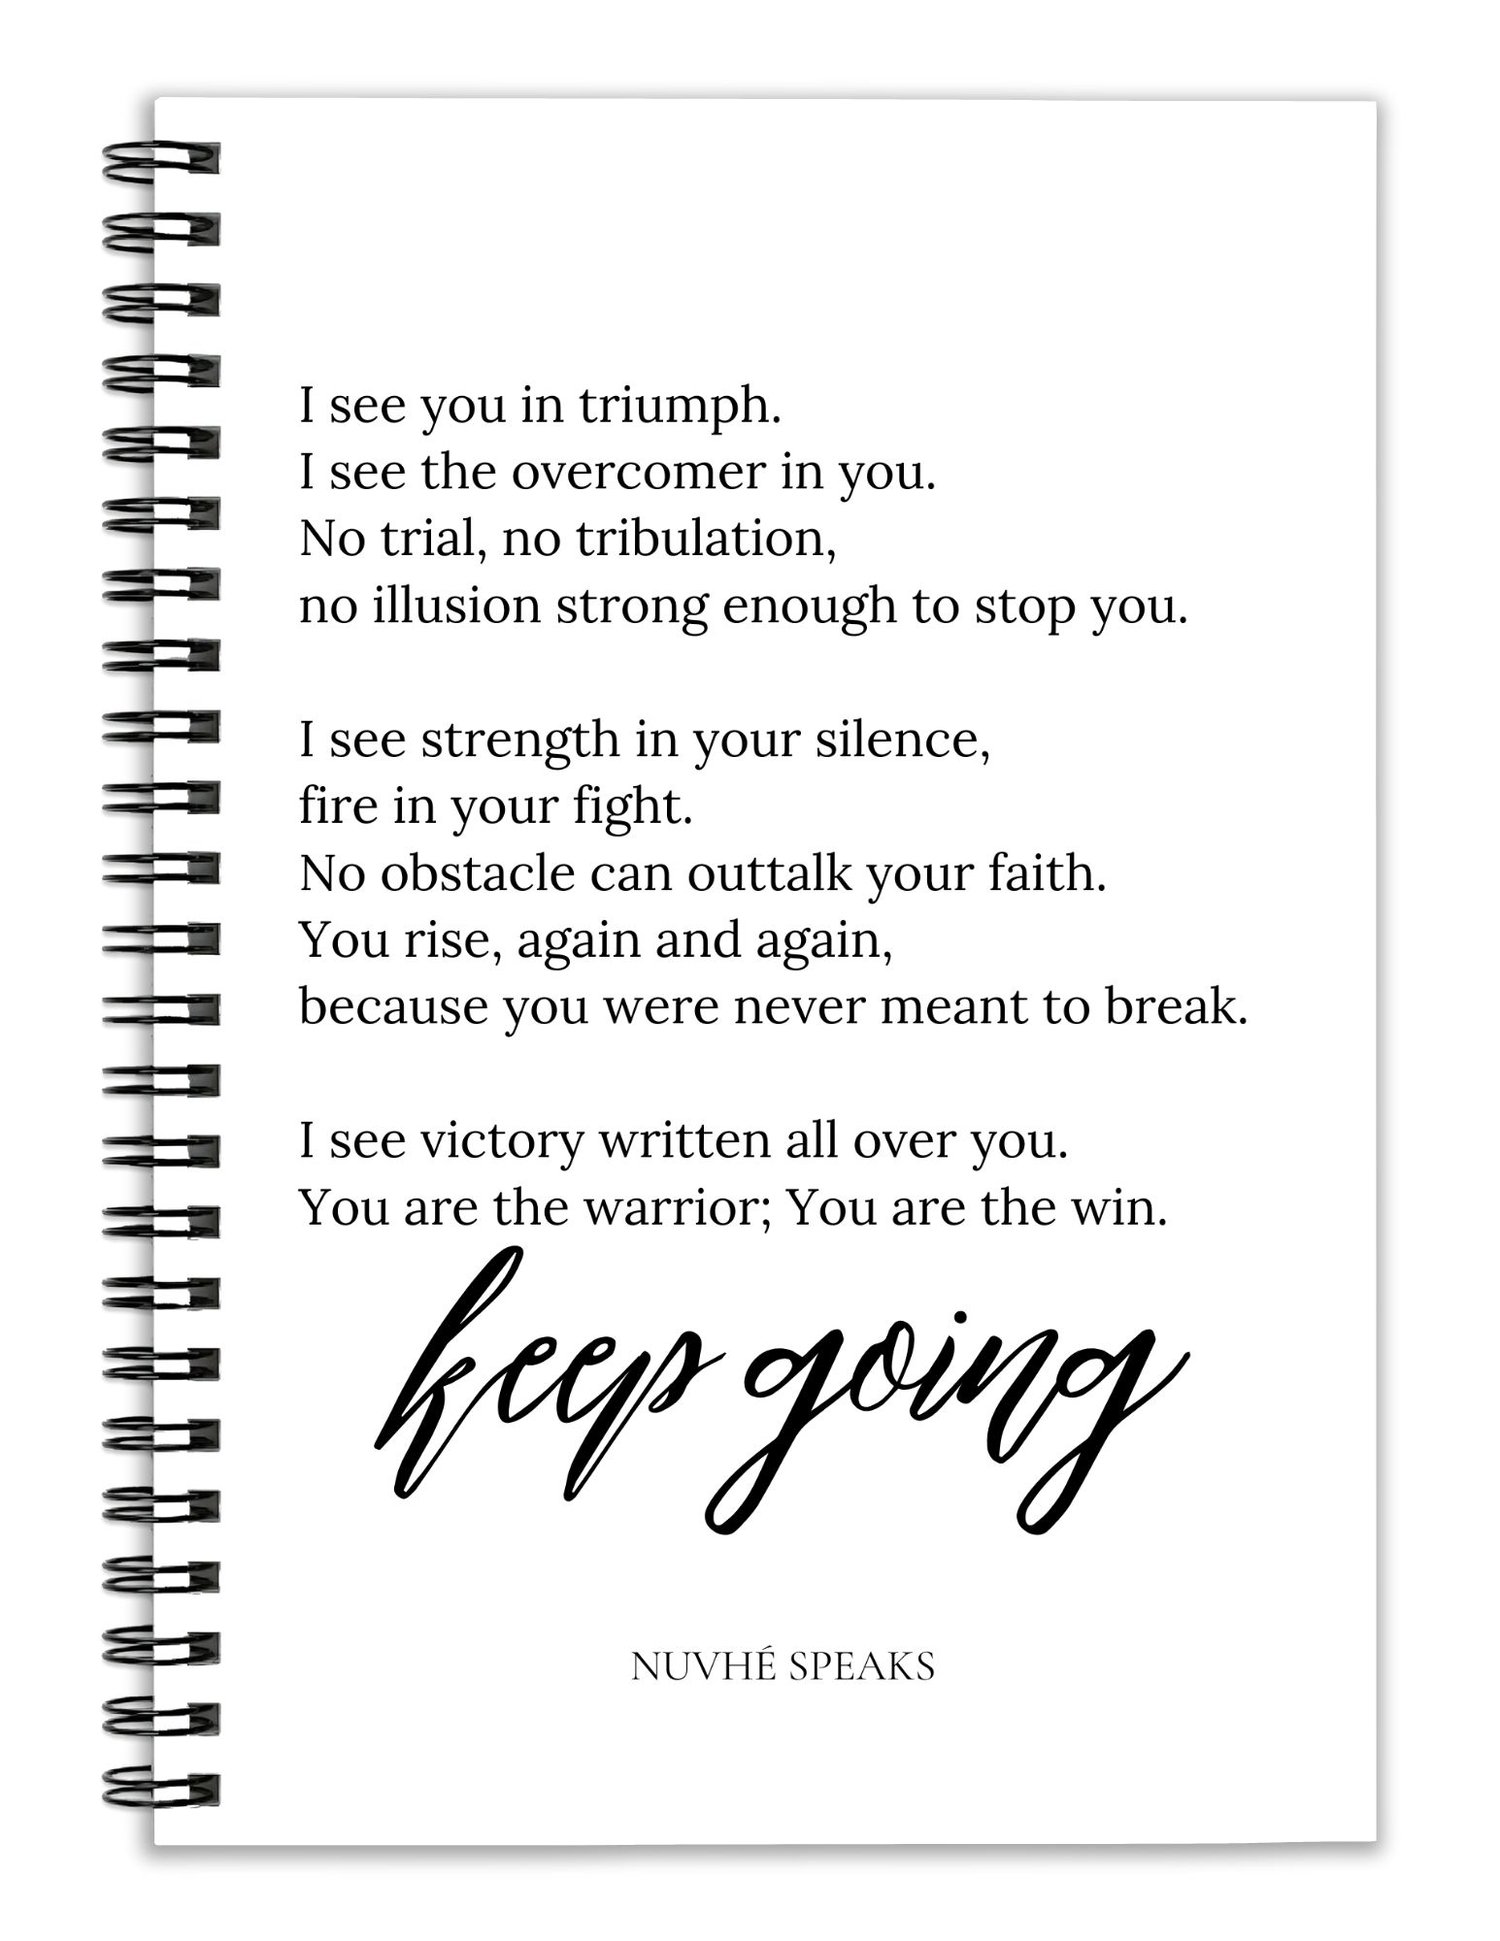 I see you in triumph.
I see the overcomer in you.
No trial, no tribulation,
no illusion strong enough to stop you.
I see strength in your silence,
fire in your fight.
No obstacle can outtalk your faith.
You rise, again and again,
because you were never meant to break.
I see victory written all over you.
You are the warrior; You are the win.
keep going
NUVHÉ SPEAKS